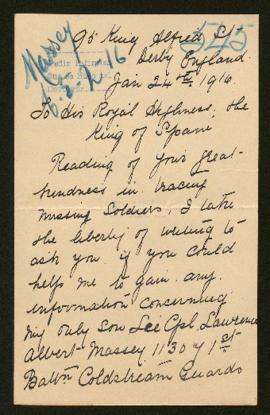 95 King Alfred St
Derby England
545
Massey
6-2-16
Jan 24th 1916
To His Royal Highness, the
King of Spain
Reading of your great
kindness in tracing
missing Soldiers, I take
the liberty of writing to
ask you if you could
help me to gain any
information concerning
my only son Lce Cpl Lawrence
Albert Massey 11307 1st
Battn Coldstream Guards